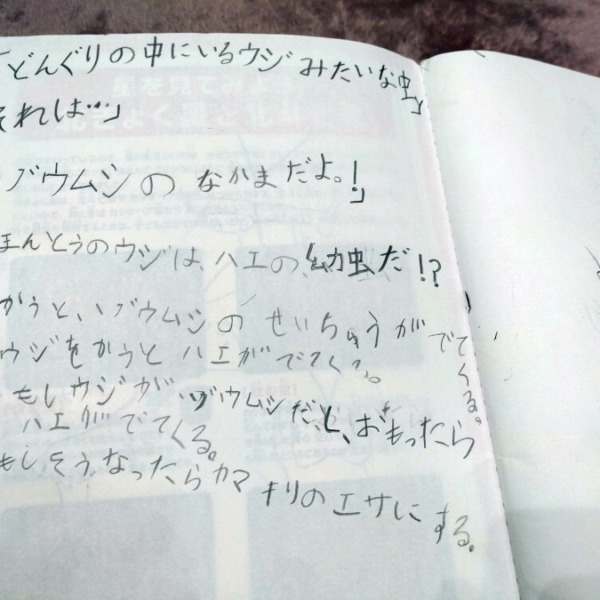 「どんぐりの中にいるウジみたいな虫」
それは…」
ゾウムシのなかまだよ。!」
ほんとうのウジは、ハエの幼虫だ!?
かうと、ゾウムシのせいちゅうがでてくる。
ウジをかうとハエがでてくる。
もしウジが、ゾウムシだ、と、おもったら
ハエがでてくる。
もしそうなったらカマキリのエサにする。